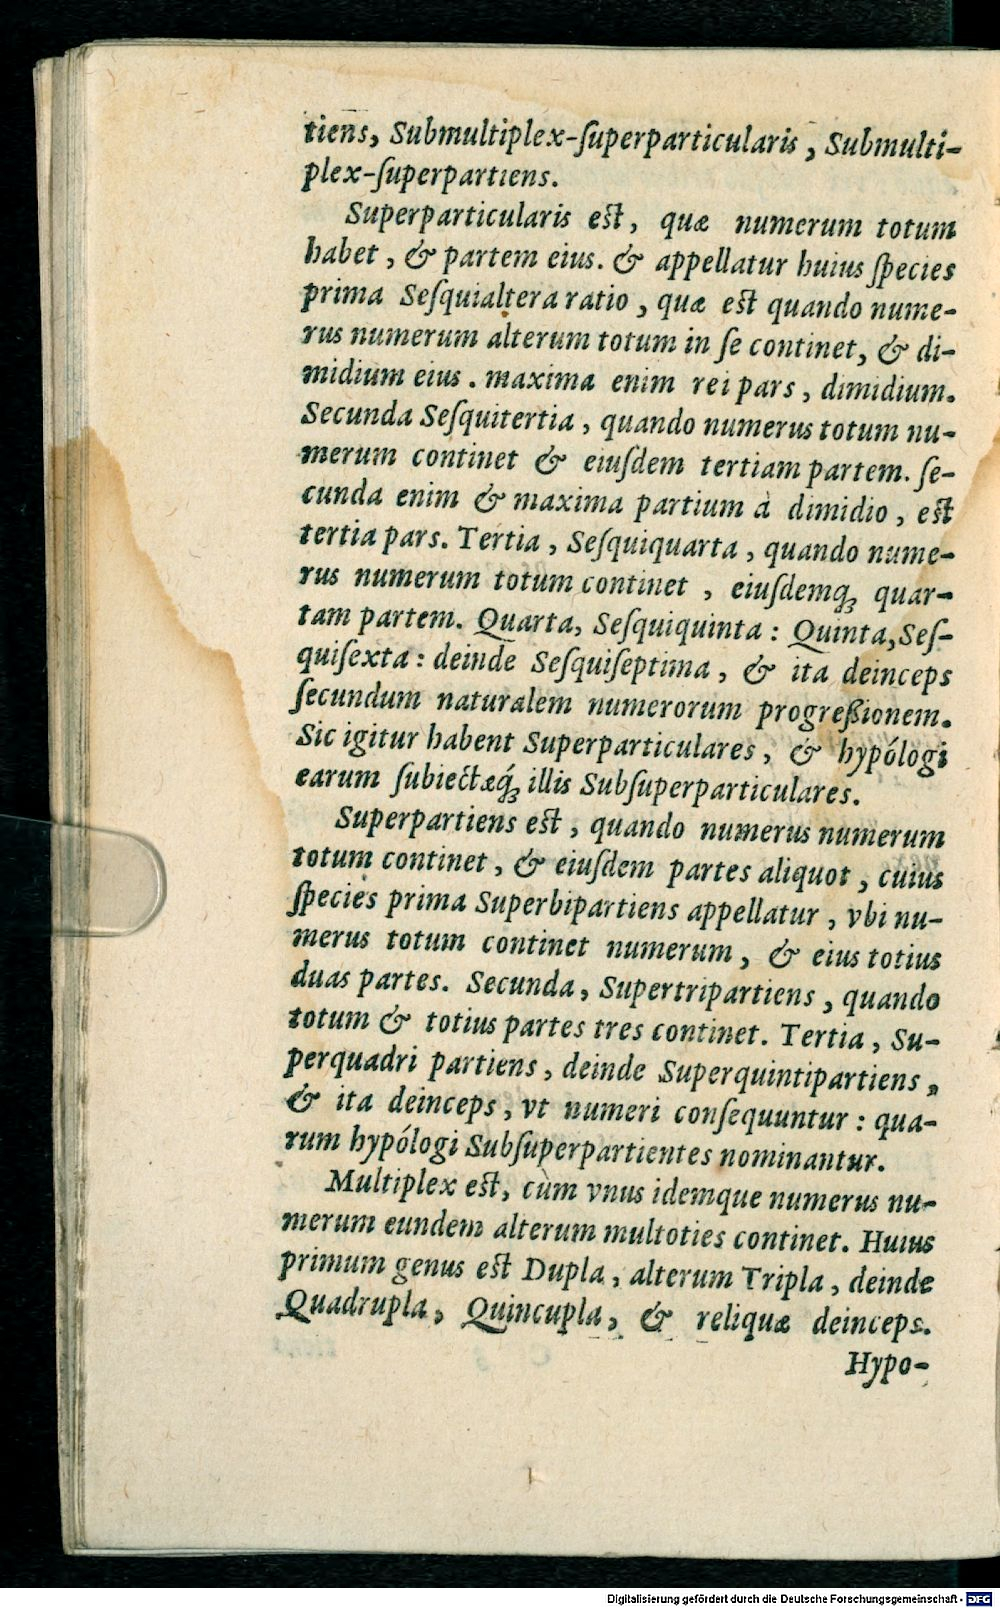 tiens, Submultiplex-ſuperparticularis, Submulti-
plex-ſuperpartiens.
Superparticularis est, quæ numerum totum
habet, & partem eius. & appellatur huius ſpecies
prima Seſquialtera ratio, quæ est quando nume-
rus numerum alterum totum in ſe continet, & di-
midium eius. maxima enim rei pars, dimidium.
Secunda Seſquitertia, quando numerus totum nu-
merum continet & eiuſdem tertiam partem. ſe-
cunda enim & maxima partium à dimidio, est
tertia pars. Tertia, Seſquiquarta, quando nume-
rus numerum totum continet, eiuſdemq́ꝫ quar-
tam partem. Quarta, Seſquiquinta: Quinta, Seſ-
quiſexta: deinde Seſquiſeptima, & ita deinceps
ſecundum naturalem numerorum progreßionem.
Sic igitur habent Superparticulares, & hypólogi
earum ſubiectæq́ꝫ illis Subſuperparticulares.
Superpartiens est, quando numerus numerum
totum continet, & eiuſdem partes aliquot, cuius
ſpecies prima Superbipartiens appellatur, vbi nu-
merus totum continet numerum, & eius totius
duas partes. Secunda, Supertripartiens, quando
totum & totius partes tres continet. Tertia, Su-
perquadri partiens, deinde Superquintipartiens,
& ita deinceps, vt numeri conſequuntur: qua-
rum hypólogi Subſuperpartientes nominantur.
Multiplex est, cùm vnus idemque numerus nu-
merum eundem alterum multoties continet. Huius
primum genus est Dupla, alterum Tripla, deinde
Quadrupla, Quincupla, & reliquæ deinceps.
Hypo-
Digitalisierung gefördert durch die Deutsche Forschungsgemeinschaft - DFG